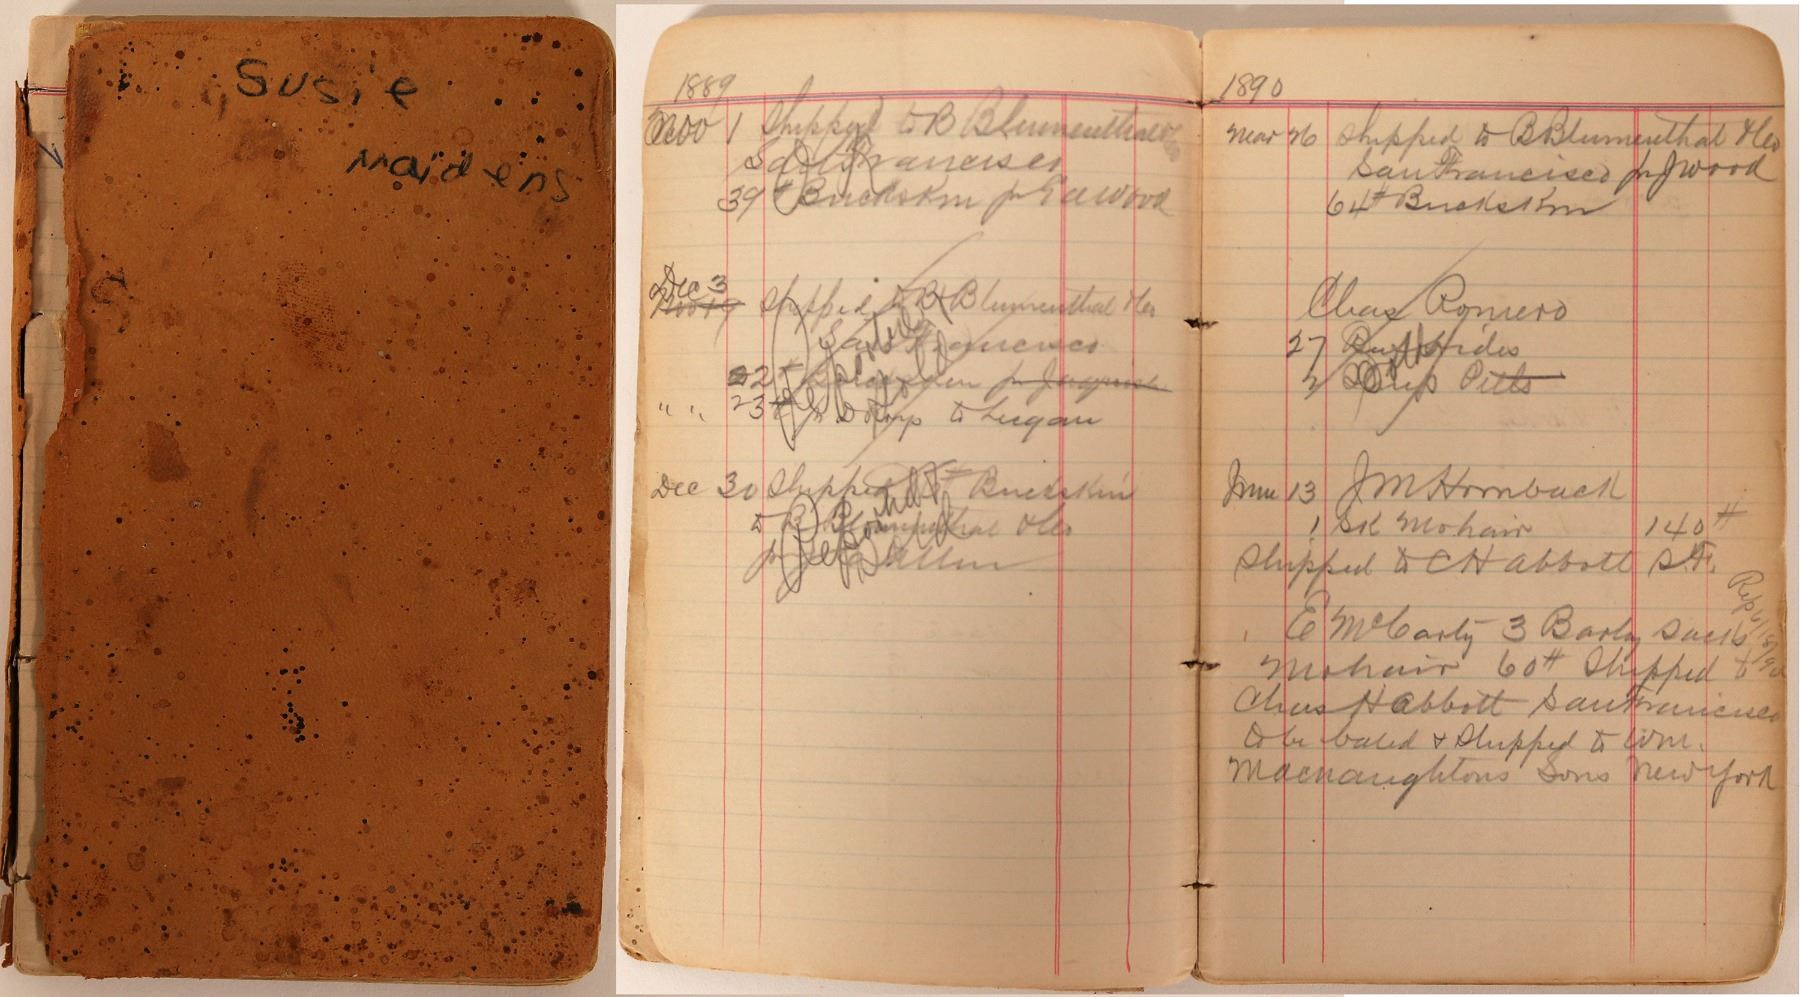 Susie
Maidens
1889
Nov 1 Shipped to B Blumenthal & Co
San Francisco
39# Buckskin for Ed Wood
Dec 3
Shipped to B Blumenthal & Co
San Francisco
22# Buckskin for
" " 23#
Dec 30 Shipped # Buckskin
to B Blumenthal & Co
for Allen
1890
Mar 26 Shipped to B Blumenthal & Co
San Francisco for J Wood
64# Buckskin
Chas Romero
27 Hides
2 Pelts
June 13 J M Hornback
1 SK Mohair 140#
Shipped to C H Abbott S.F.
E McCarty 3 Barly Sacks
Mohair 60# Shipped to
Chas H Abbott San Francisco
to be baled & Shipped to Wm.
Macnaughtons Sons New York